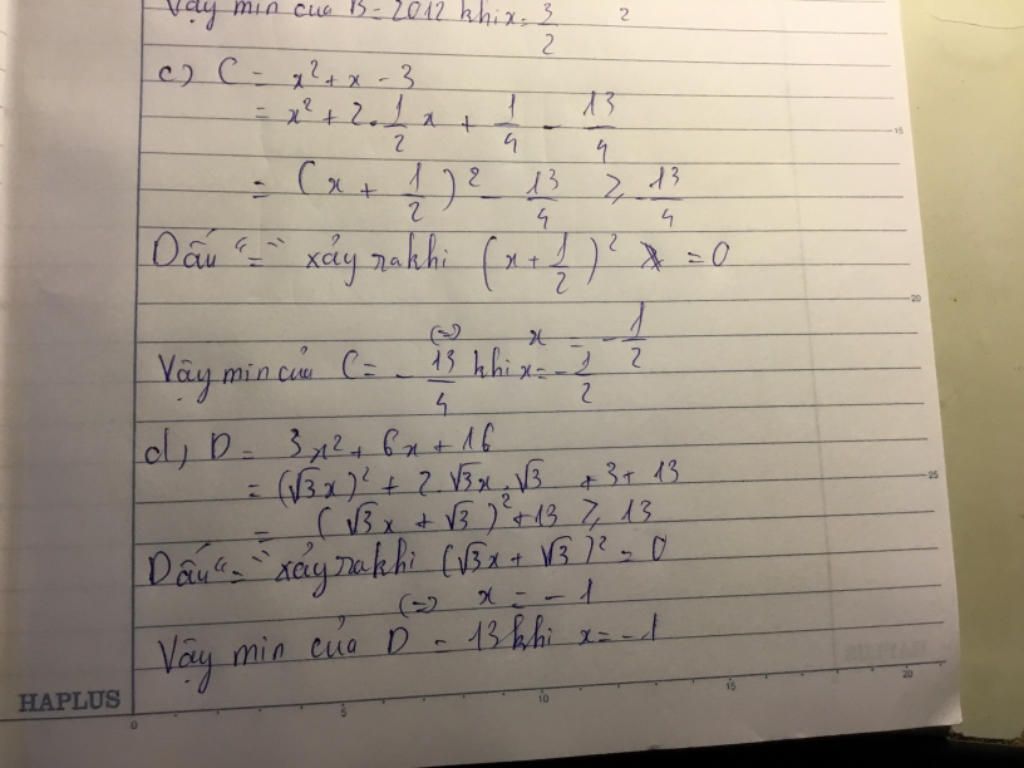 Vậy min của B = 2012 khi x = 3/2
c) C = x² + x - 3
= x² + 2.1/2 x + 1/4 - 13/4
= (x + 1/2)² - 13/4 ≥ -13/4
Dấu "=" xảy ra khi (x + 1/2)² = 0
(=) x = -1/2
Vậy min của C = -13/4 khi x = -1/2
d) D = 3x² + 6x + 16
= (√3x)² + 2.√3x.√3 + 3 + 13
= (√3x + √3)² + 13 ≥ 13
Dấu "=" xảy ra khi (√3x + √3)² = 0
(=) x = -1
Vậy min của D = 13 khi x = -1
15
20
25
HAPLUS
0 5 10 15 20